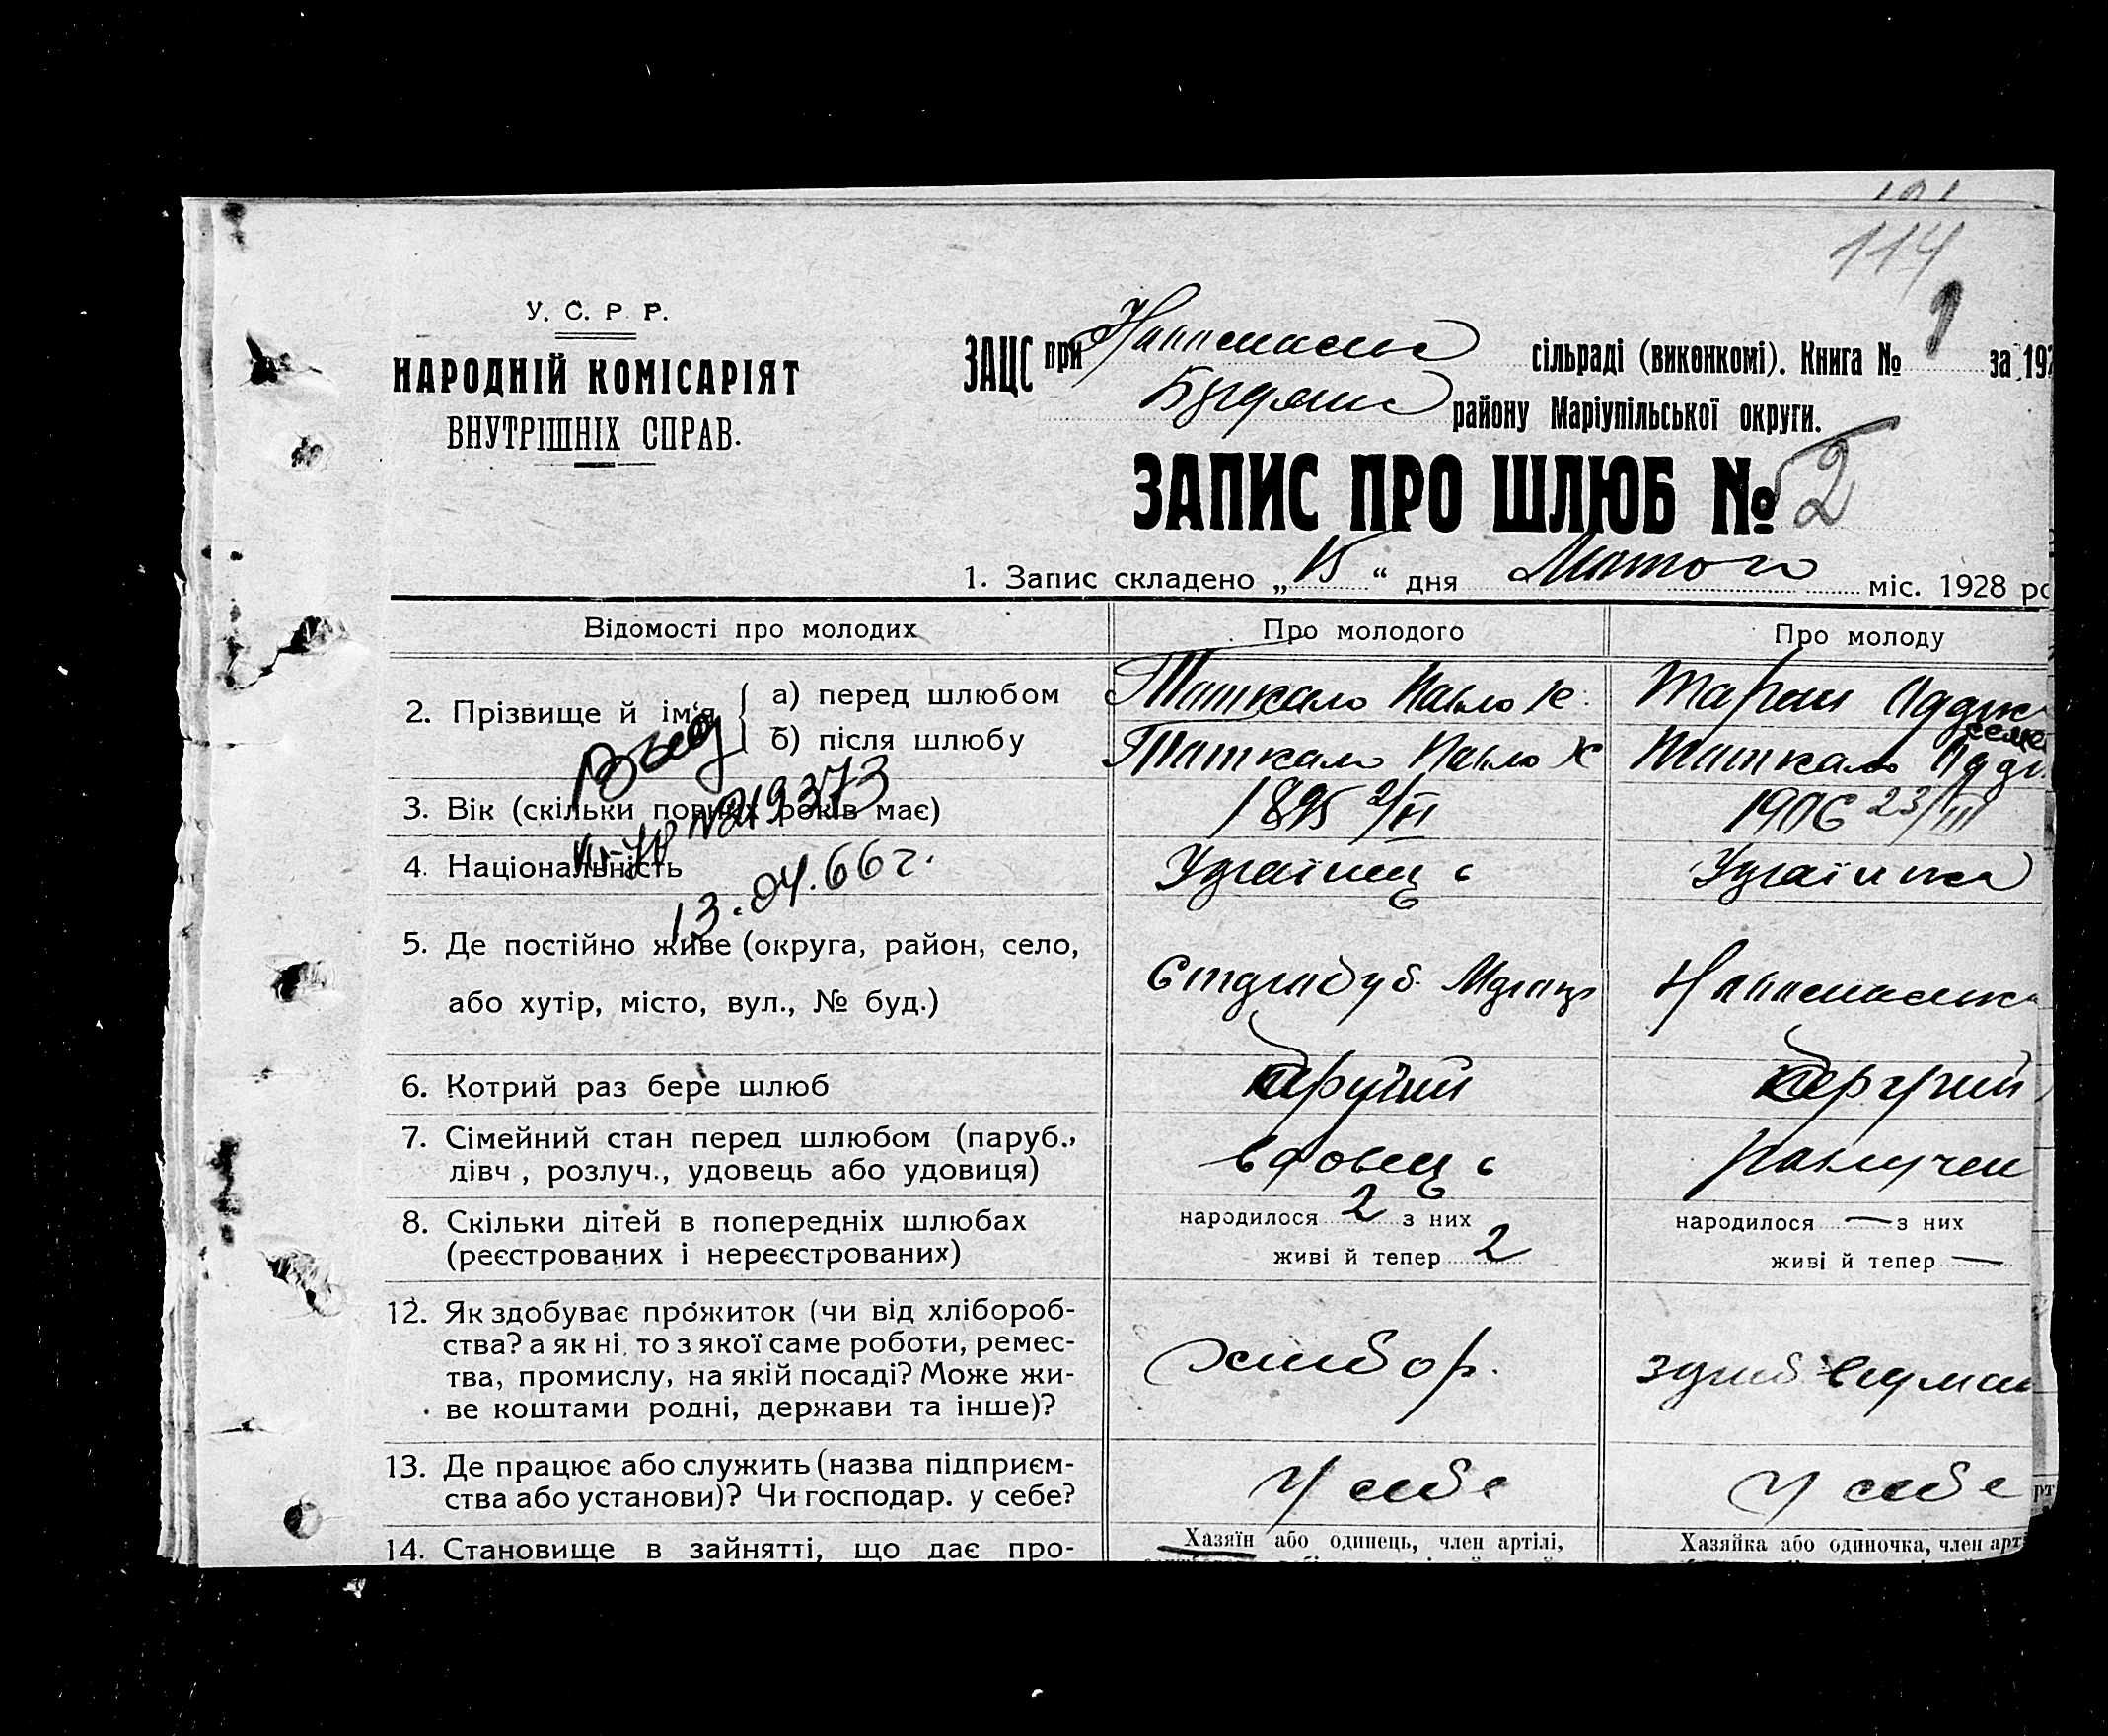 114
У. С. Р. Р.
НАРОДНІЙ КОМІСАРІЯТ
ВНУТРІШНІХ СПРАВ.
ЗАЦС при сільраді (виконкомі). Книга № 1 за 192
району Маріупільської округи.
ЗАПИС ПРО ШЛЮБ № 2
1. Запис складено „15“ дня Лютого міс. 1928 ро
Відомості про молодих Про молодого Про молоду
2. Прізвище й ім'я а) перед шлюбом Ташкало Павло К.
б) після шлюбу Ташкало Павло К Ташкало
3. Вік (скільки повних років має) 1895 2/VI 1906 23/III
№219373
4. Національність Украінець Украінка
13.04.66 г.
5. Де постійно живе (округа, район, село,
або хутір, місто, вул., № буд.)
6. Котрий раз бере шлюб другий другий
7. Сімейний стан перед шлюбом (паруб.,
дівч., розлуч., удовець або удовиця) вдовець розлучен
8. Скільки дітей в попередніх шлюбах народилося 2 з них народилося — з них
(реєстрованих і нереєстрованих) живі й тепер 2 живі й тепер —
12. Як здобуває прожиток (чи від хлібороб-
ства? а як ні, то з якої саме роботи, ремес-
тва, промислу, на якій посаді? Може жи- хлибор.
ве коштами родні, держави та інше)?
13. Де працює або служить (назва підприєм- у себе у себе
ства або установи)? Чи господар. у себе?
14. Становище в зайнятті, що дає про- Хазяїн або одинець, член артілі, Хазяйка або одиночка, член арті